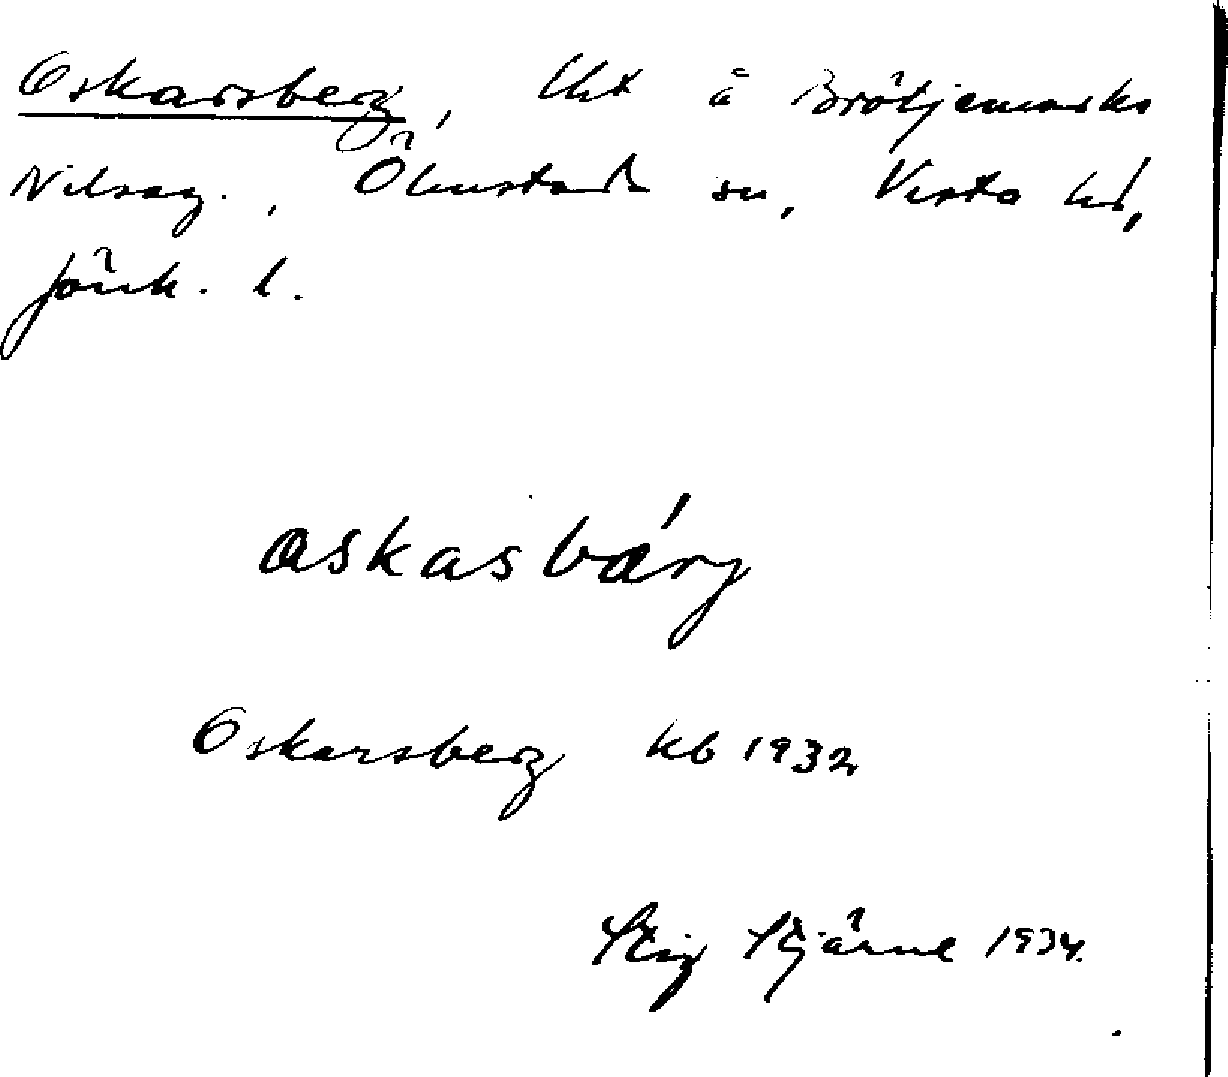 Oskarsberg, lht å Brötjemarks
Nilsag., Ölmstad sn, Vista hd,
Jönk. l.
askasbárj
Oskarsberg kb 1932
Stig Stjärne 1934.